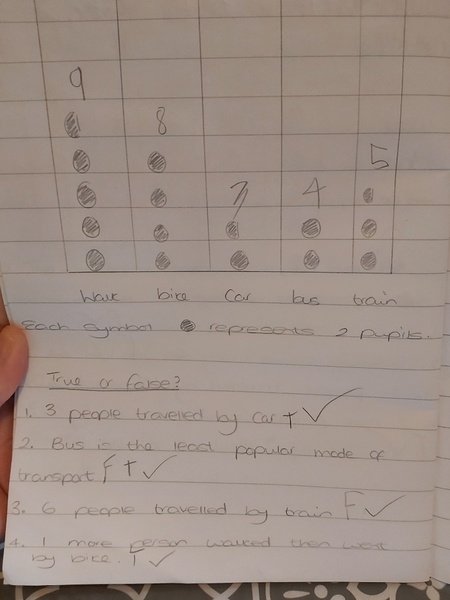 9
8
5
3
4
Walk bike Car bus train
Each symbol represents 2 pupils.
True or false?
1. 3 people travelled by car T ✓
2. Bus is the least popular mode of
transport F T ✓
3. 6 people travelled by train F ✓
4. 1 more person walked then went
by bike. T ✓